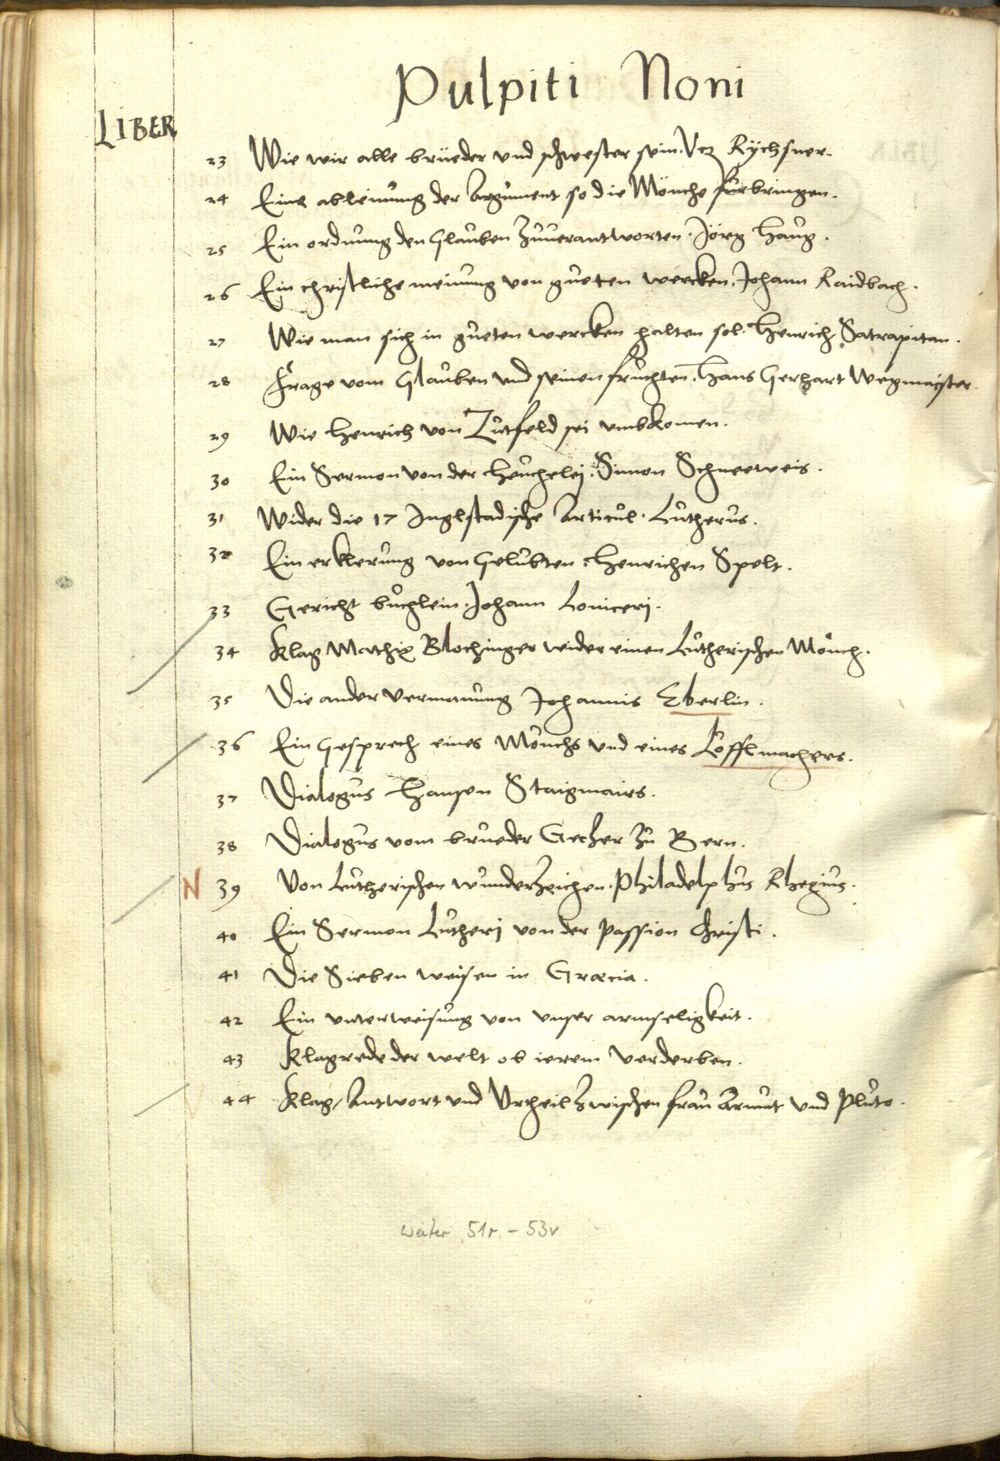 Pulpiti Noni
LIBER
23 Wie wir alle brüeder und schwester sein. Utz Rÿchsner.
24 Eine ableinung der Argument so die Mönche fürbringen.
25 Ein ordnung den Glauben zuverantworten. Jörg Haug.
26 Ein christliche meinung von gueten wercken. Johann Raidbach.
27 Wie man sich in gueten wercken halten sol. Henrich Satrapitan.
28 Frage vom Glauben und seinen früchten. Hans Gerhart Wegmaister.
29 Wie Henrich von Zutfeld sei umbkomen.
30 Ein Sermon von der Heuchelej. Simon Schneeweis.
31 Wider die 17 Inglstadische Articul. Lutherus.
32 Ein erklerung von Gelubten. Henrichen Spelt.
33 Gericht büchlein. Johann Lonicerj.
34 Klag Mathiæ Blochinger wider einen Lutherischen Mönch.
35 Die ander Vermanung Johannis Eberlin.
36 Ein Gesprech eines Mönchs und eines Löfflmachers.
37 Dialogus Hansen Staigmairs.
38 Dialogus vom brueder Getzer zu Bern.
N 39 Von Lutherischen wunderzeichen. Philadelphus Rhegius.
40 Ein Sermon Lutherj von der Passion Christi.
41 Die Sieben weisen in Græcia.
42 Ein unterweisung von unser armseligkeit.
43 Klagrede der welt ob ierem Verderben.
44 Klag, Antwort und Urtheil zwischen frau Armut und Pluto.
weiter 51r - 53v